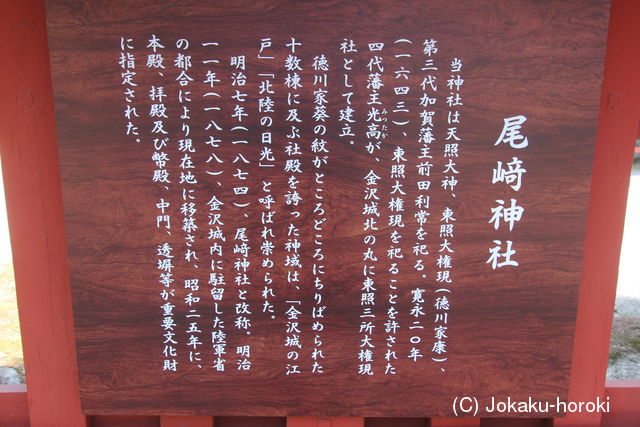 尾﨑神社
当神社は天照大神、東照大権現(徳川家康)、
第三代加賀藩主前田利常を祀る。寛永二〇年
(一六四三)、東照大権現を祀ることを許された
四代藩主光高が、金沢城北の丸に東照三所大権現
みつたか
社として建立。
徳川家葵の紋がところどころにちりばめられた
十数棟に及ぶ社殿を誇った神域は、「金沢城の江
戸」「北陸の日光」と呼ばれ崇められた。
明治七年(一八七四)、尾﨑神社と改称。明治
一一年(一八七八)、金沢城内に駐留した陸軍省
の都合により現在地に移築され、昭和二五年に、
本殿、拝殿及び幣殿、中門、透塀等が重要文化財
に指定された。
(C) Jokaku-horoki